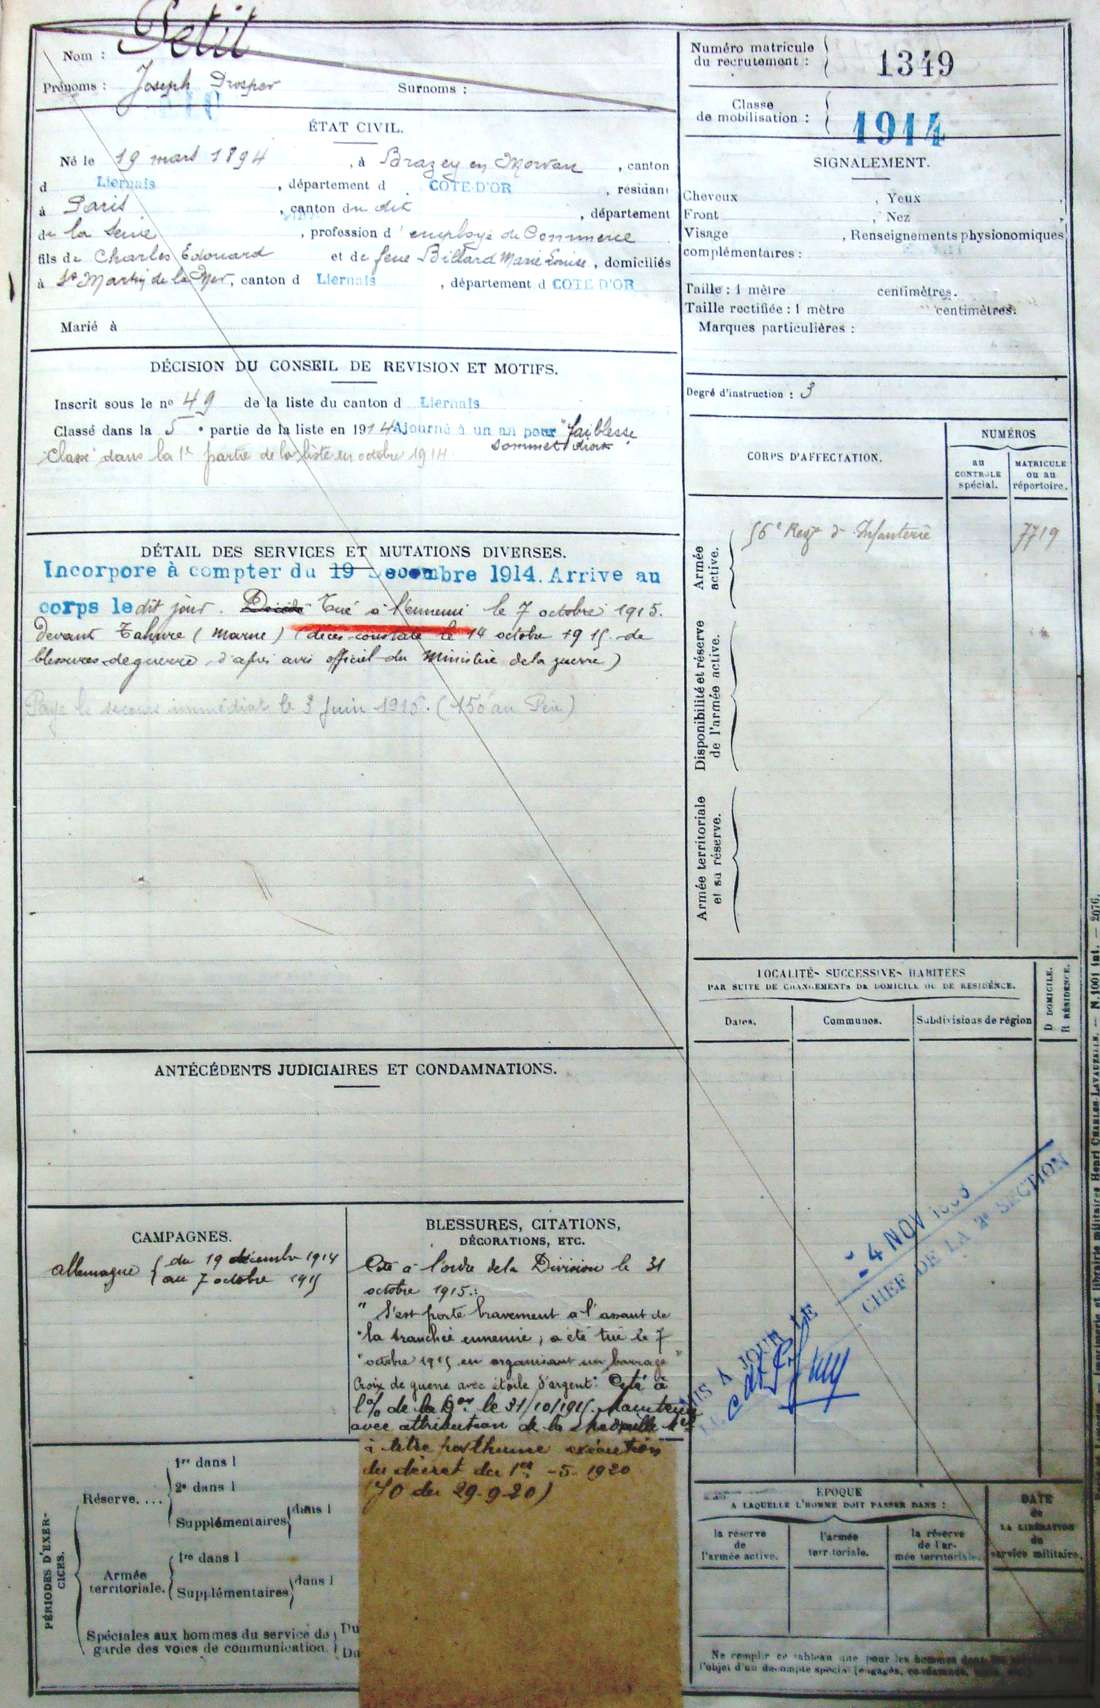 Nom : Petit
Prénoms : Joseph Prosper Surnoms :
Numéro matricule du recrutement : 1349
Classe de mobilisation : 1914
ÉTAT CIVIL.
Né le 19 mars 1894, à Brazey en Morvan, canton
d Liernais, département d COTE-D'OR, résidant
à Paris, canton du dit, département
de la Seine, profession d'employé de Commerce
fils de Charles Edouard et de feue Billard Marie Louise, domiciliés
à St Martin de la Mer, canton d Liernais, département d COTE D'OR
Marié à
SIGNALEMENT.
Cheveux , Yeux ,
Front , Nez ,
Visage , Renseignements physionomiques
complémentaires :
Taille : 1 mètre centimètres.
Taille rectifiée : 1 mètre centimètres.
Marques particulières :
Degré d'instruction : 3
DÉCISION DU CONSEIL DE REVISION ET MOTIFS.
Inscrit sous le no 49 de la liste du canton d Liernais
Classé dans la 5e partie de la liste en 1914 Ajourné à un an pour "faiblesse
sommet droit
Classé dans la 1e partie de la liste en octobre 1914
CORPS D'AFFECTATION.
NUMÉROS
au CONTROLE spécial.
MATRICULE ou au répertoire.
Armée active.
56e Regt d'Infanterie 7719
Disponibilité et réserve de l'armée active.
Armée territoriale et sa réserve.
DÉTAIL DES SERVICES ET MUTATIONS DIVERSES.
Incorpore à compter du 19 Decembre 1914. Arrive au
corps le dit jour. Décédé Tué à l'ennemi le 7 octobre 1915.
Devant Tahure (Marne) (décès constaté le 14 octobre 1915 de
blessures de guerre, d'après avis officiel du Ministère de la guerre)
Payé le secours immédiat le 3 Juin 1916. (150 au Père)
LOCALITÉS SUCCESSIVES HABITÉES
PAR SUITE DE CHANGEMENTS DE DOMICILE OU DE RÉSIDENCE.
Dates.
Communes.
Subdivisions de région
D DOMICILE.
R RÉSIDENCE.
ANTÉCÉDENTS JUDICIAIRES ET CONDAMNATIONS.
CAMPAGNES.
Allemagne { du 19 décembre 1914
au 7 octobre 1915
BLESSURES, CITATIONS,
DÉCORATIONS, ETC.
Cité à l'ordre de la Division le 31
octobre 1915 :
"S'est porté bravement à l'assaut de
"la tranchée ennemie, a été tué le 7
"octobre 1915 en organisant un barrage"
Croix de guerre avec étoile d'argent : Cité à
l'o/ de la Don le 31/10/1915. Maintenue
avec attribution de la Médaille Mre
à titre posthume exécution
du décret du 1er -5-1920
(JO du 29-9-20)
4 NOV
CHEF DE LA 2e SECTION
MIS A JOUR LE
PÉRIODES D'EXERCICES.
Réserve....
1re dans l
2e dans l
Supplémentaires dans l
Armée territoriale.
1re dans l
Supplémentaires dans l
Spéciales aux hommes du service de
garde des voies de communication.
Du
Du
ÉPOQUE
A LAQUELLE L'HOMME DOIT PASSER DANS :
la réserve de l'armée active.
l'armée territoriale.
la réserve de l'armée territoriale.
DATE
de
LA LIBÉRATION
du
service militaire.
Ne remplir ce tableau que pour les hommes
l'objet d'un décompte spécial (engagés,